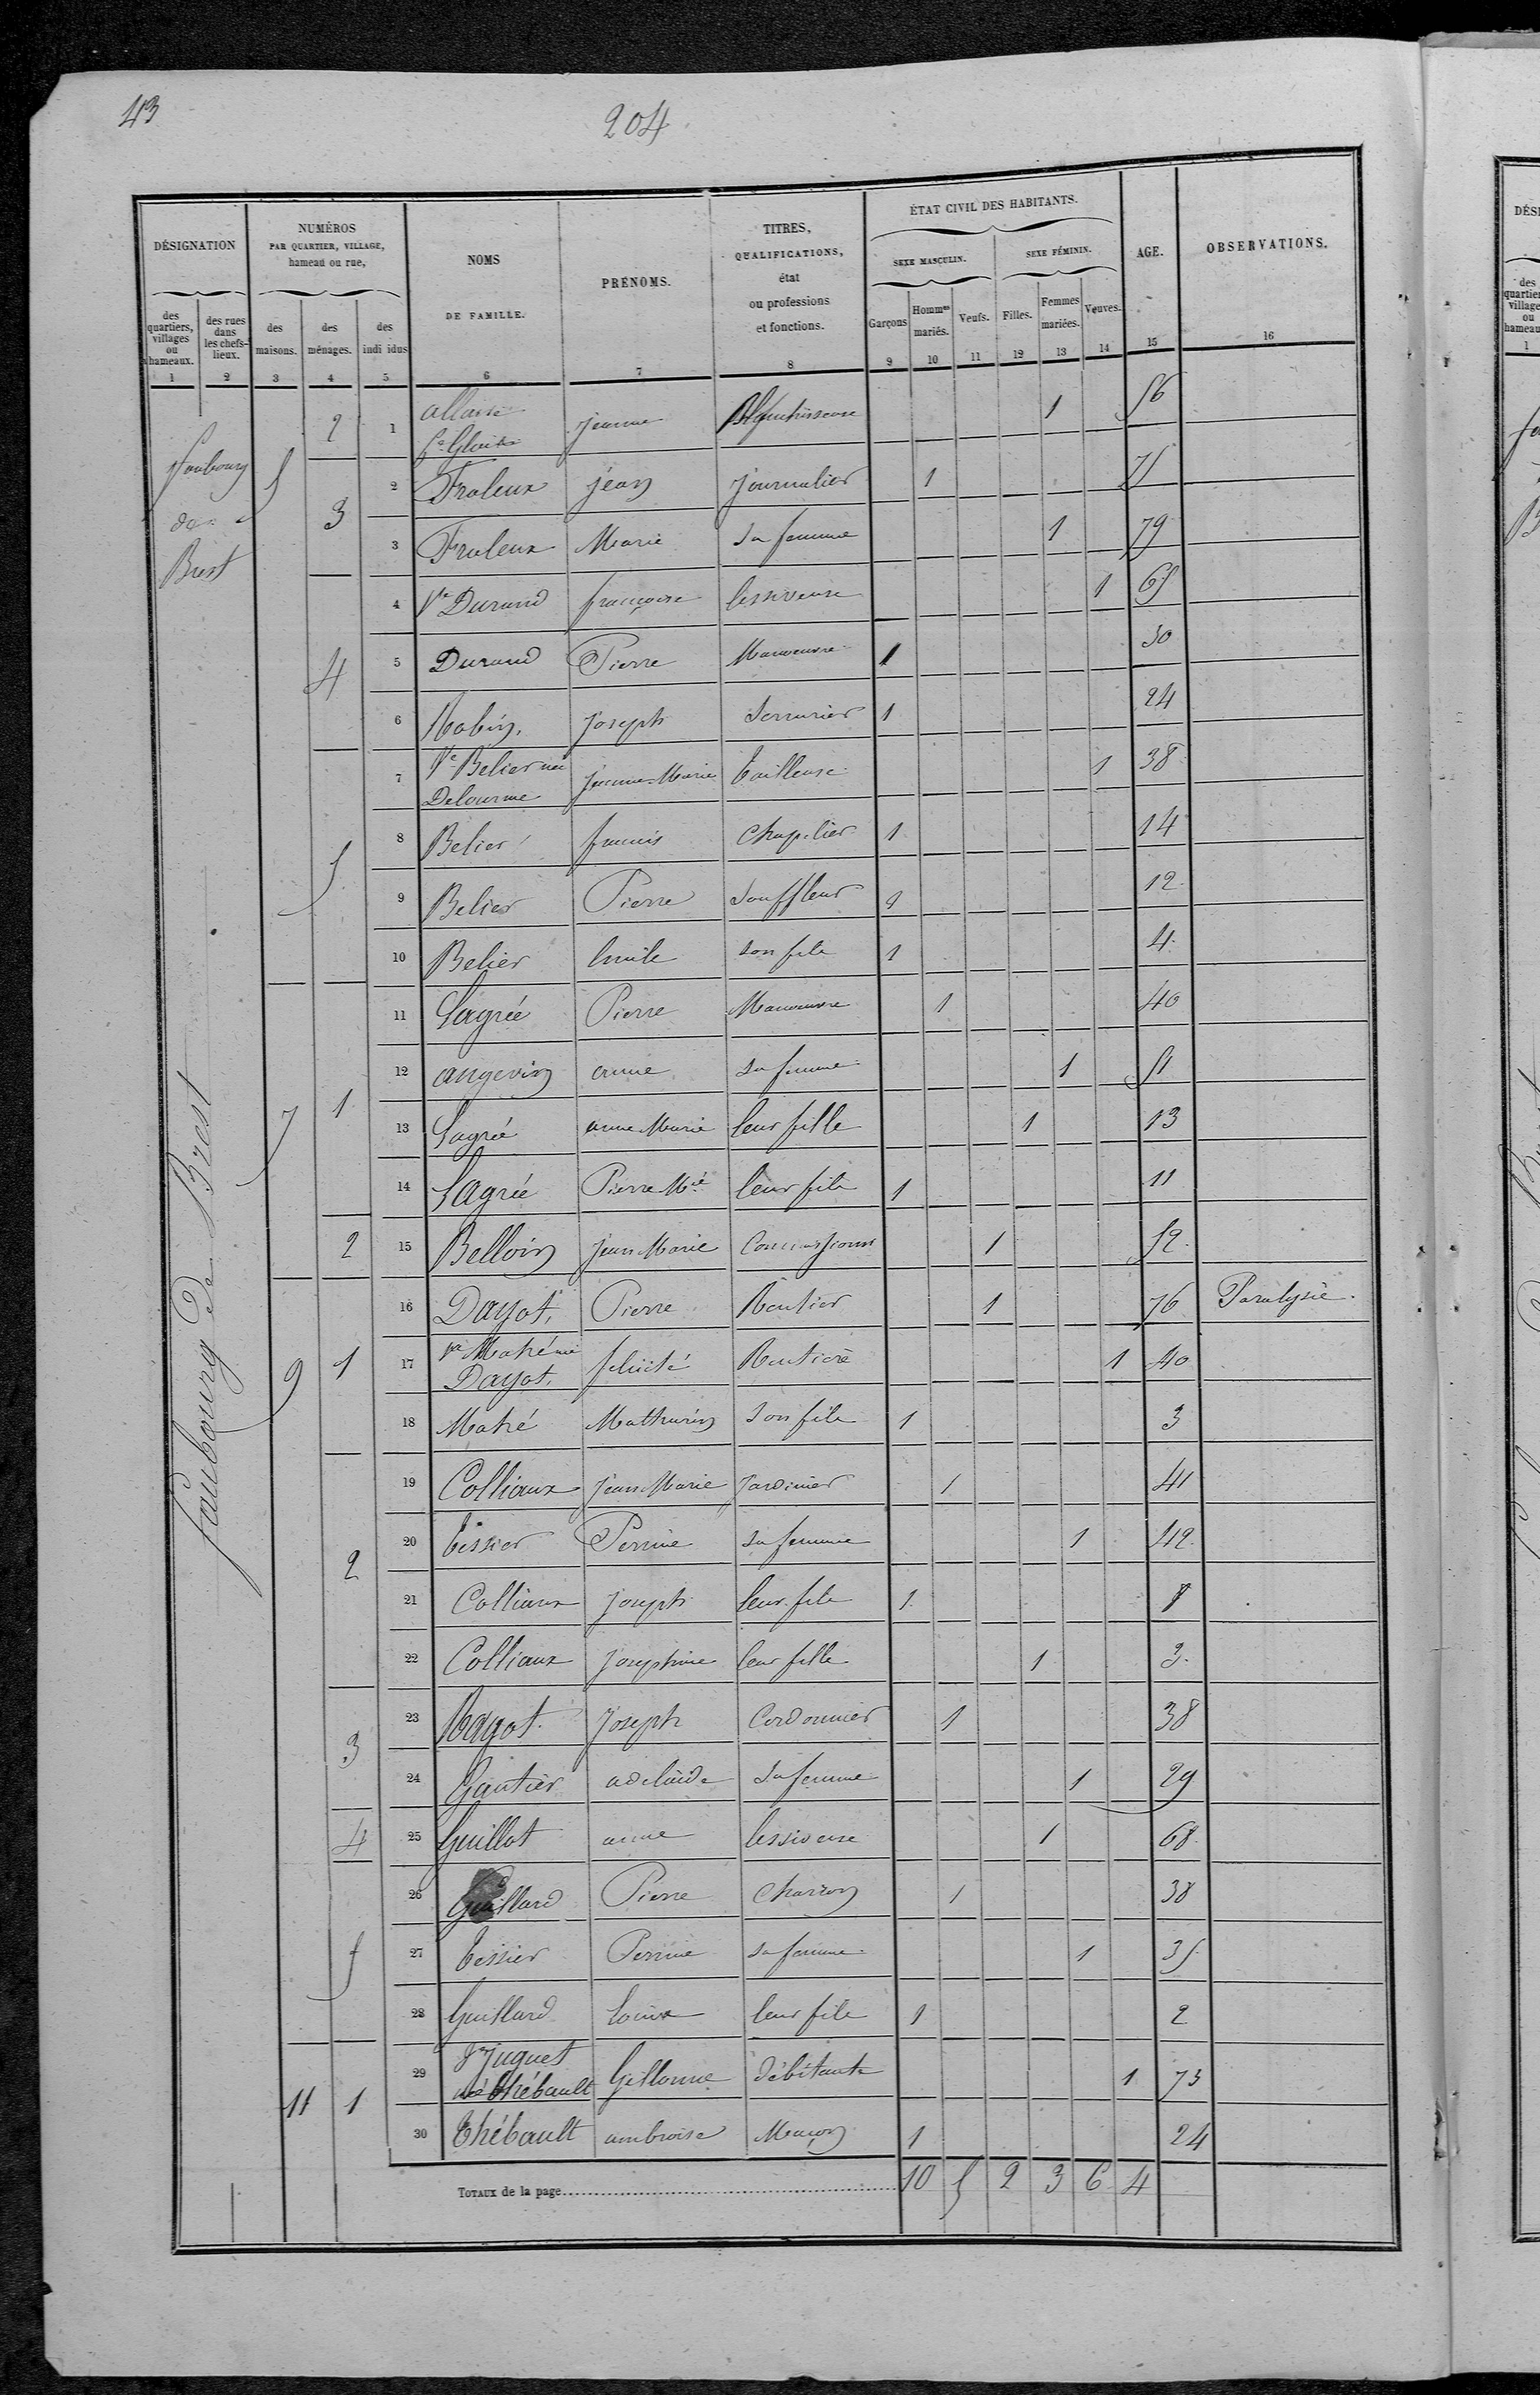 43
204
DÉSIGNATION
NUMÉROS
PAR QUARTIER, VILLAGE,
hameau ou rue,
NOMS
DE FAMILLE.
PRÉNOMS.
TITRES,
QUALIFICATIONS,
état
ou professions
et fonctions.
ÉTAT CIVIL DES HABITANTS.
SEXE MASCULIN.
SEXE FÉMININ.
AGE.
OBSERVATIONS.
des quartiers, villages ou hameaux.
des rues dans les chefs-lieux.
des maisons.
des ménages.
des indi idus
Garçons
Hommes mariés.
Veufs.
Filles.
Femmes mariées.
Veuves.
1 2 3 4 5 6 7 8 9 10 11 12 13 14 15 16
faubourg
de
Brest
faubourg de Brest
5 2 1 allaire jeanne Blanchisseuse 1 56
3 2 Fraleux jean journalier 1 75
3 Fraleux Marie sa femme 1 79
4 4 Ve Durand françoise lessiveuse 1 65
5 Durand Pierre Manoeuvre 1 30
6 Robin joseph Serrurier 1 24
5 7 Ve Belier née Delourme jeanne Marie tailleuse 1 38
8 Belier francis Chapelier 1 14
9 Belier Pierre Souffleur 1 12
10 Belier Emile son fils 1 4
7 1 11 Lagrée Pierre Manoeuvre 1 40
12 angevin anne sa femme 1 51
13 Lagrée anne Marie leur fille 1 13
14 Lagrée Pierre Mie leur fils 1 11
2 15 Belloin jean Marie 1 52
9 1 16 Dayot Pierre Rentier 1 76 Paralysie
17 Ve Mahé née Dayot félicité Rentière 1 40
18 Mahé Mathurin son fils 1 3
2 19 Colliaux jean Marie Jardinier 1 41
20 tessier Perrine sa femme 1 42
21 Colliaux joseph leur fils 1 8
22 Colliaux josephine leur fille 1 3
3 23 Ragot joseph Cordonnier 1 38
24 Gautier adelaïde sa femme 1 29
4 25 Guillot anne lessiveuse 1 68
5 26 Guillard Pierre Charron 1 38
27 tessier Perrine sa femme 1 35
28 Guillard Louis leur fils 1 2
11 1 29 Ve Juguet née thébault Gillonne débitante 1 73
30 thébault ambroise Maçon 1 24
TOTAUX de la page 10 5 2 3 6 4